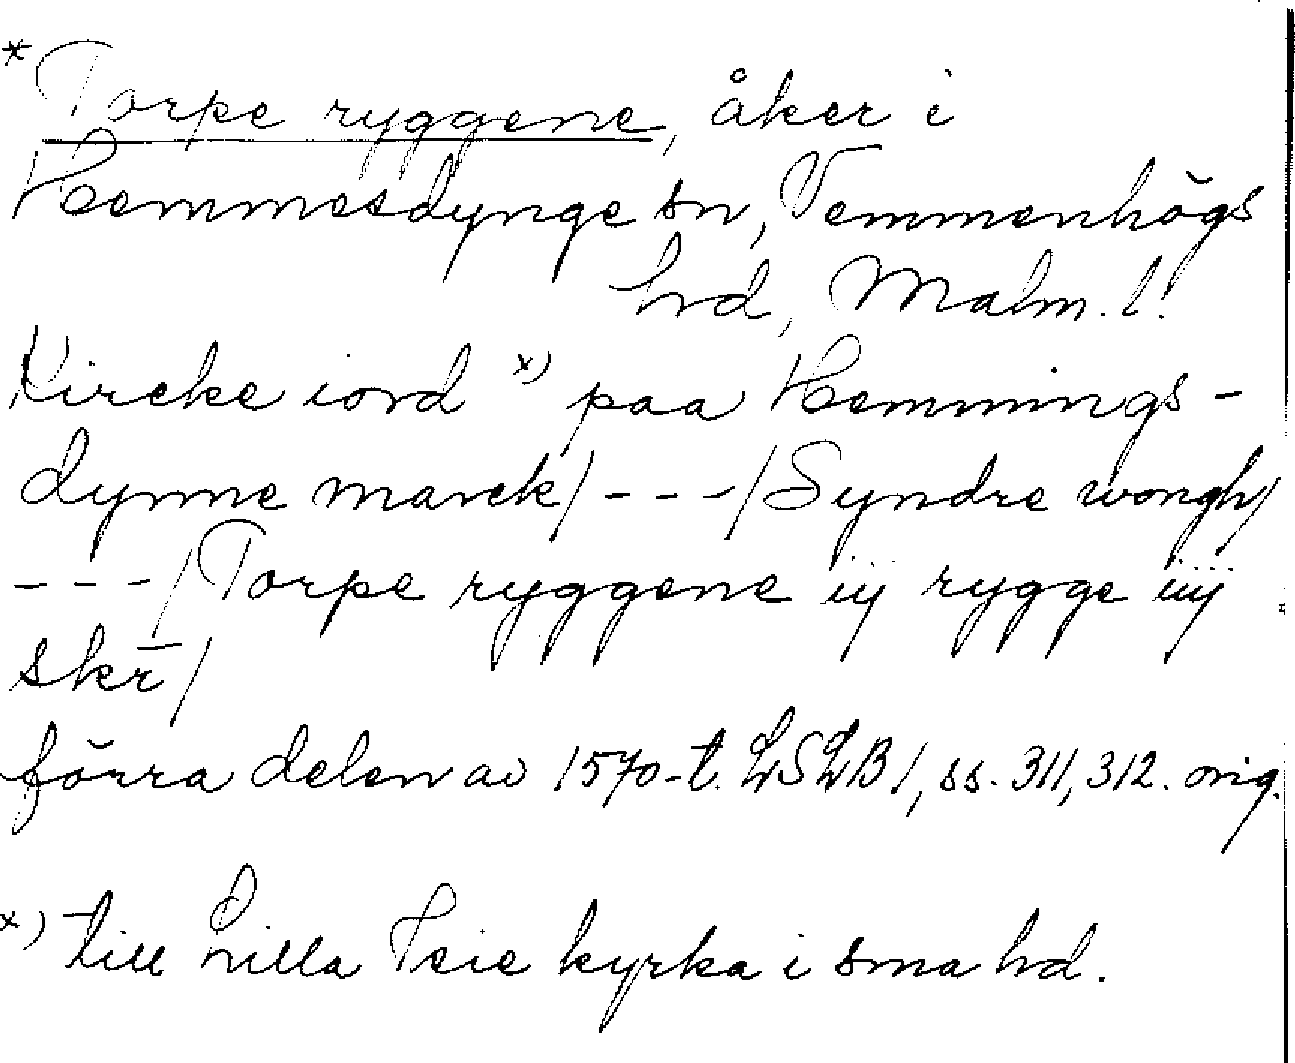 *Torpe ryggene, åker i
Hemmesdynge sn, Vemmenhögs
hd, Malm. l.
Kircke iord x) paa Hemmings-
dynne marck/---/Syndre wongh/
---/Torpe ryggene iij rygge iiij
skr̄/
förra delen av 1570-t. LSLB 1, ss. 311, 312. orig.
x) till Lilla Isie kyrka i sma hd.